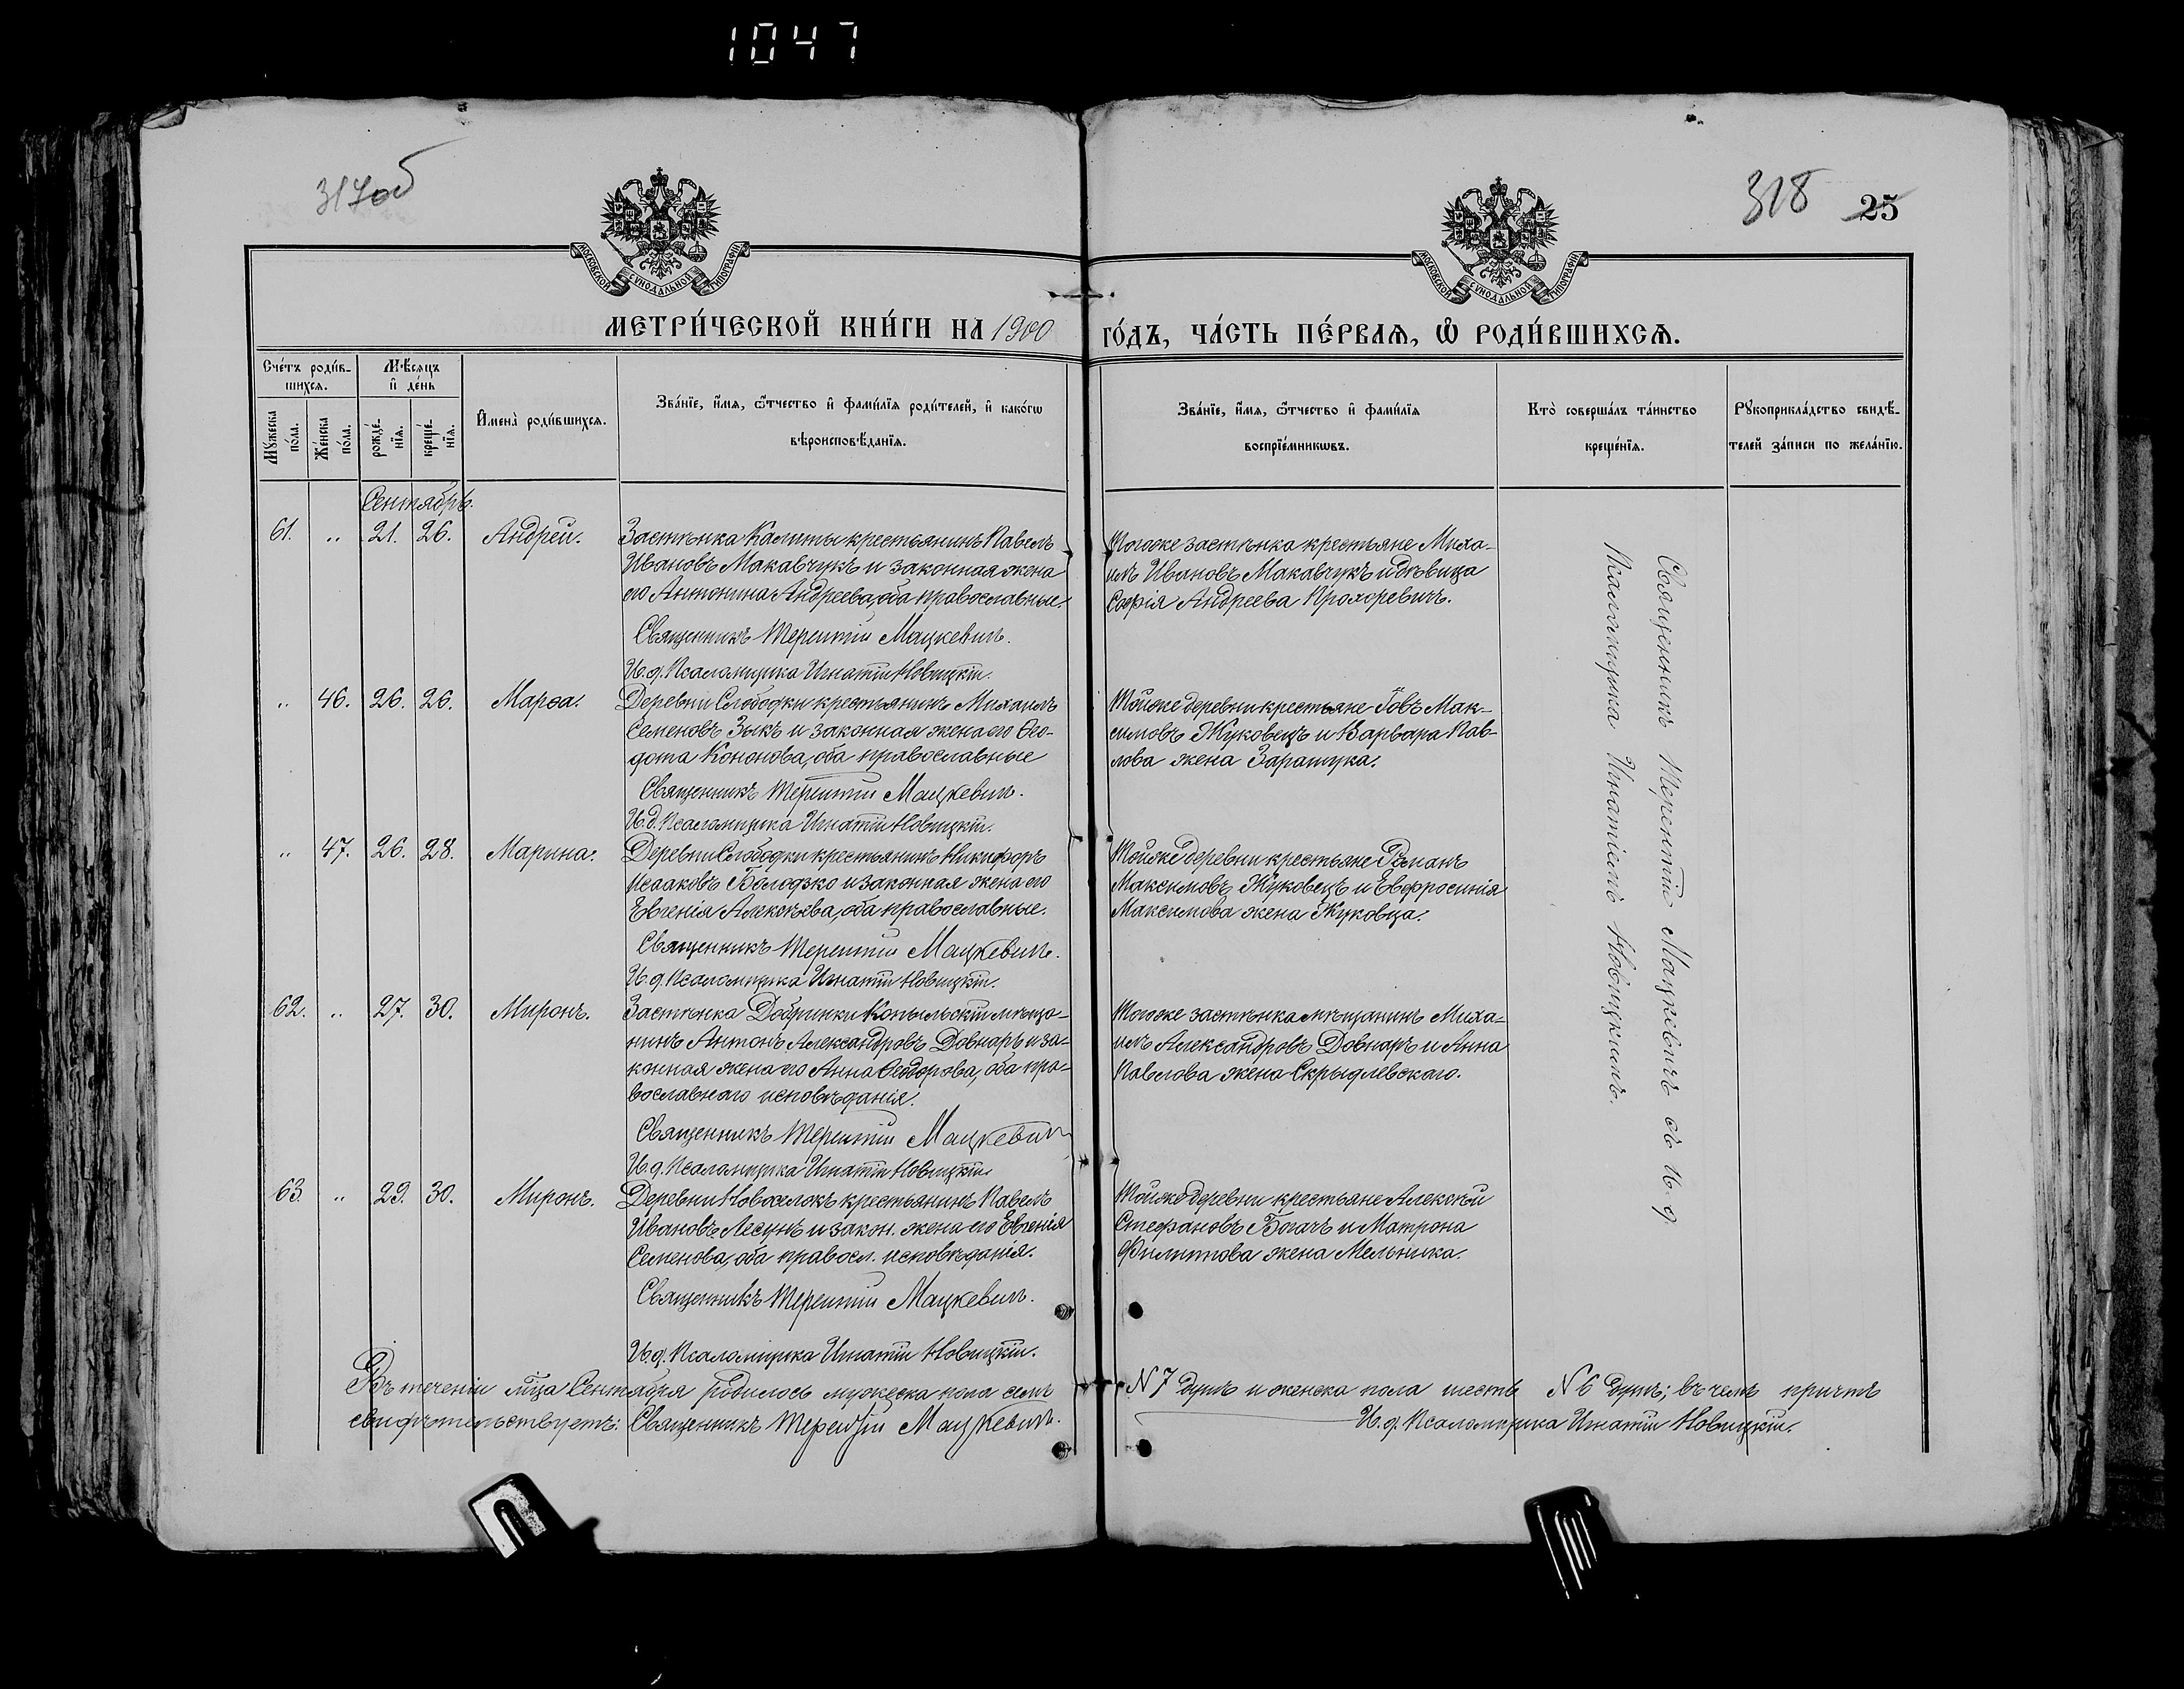 1047
317об
318 25
МОСКОВСКОЙ СѴНОДАЛЬНОЙ ТИПОГРАФІИ
МОСКОВСКОЙ СѴНОДАЛЬНОЙ ТИПОГРАФІИ
МЕТРИ́ЧЕСКОЙ КНИ́ГИ НА 1900 ГО́ДЪ, ЧА́СТЬ ПЕ́РВАѦ, Ѡ҆ РОДИ́ВШИХСѦ.
Сче́тъ роди́в-
шихся.
Мꙋ́жеска по́ла.
Же́нска по́ла.
Мѣ́сяцъ и҆ де́нь
рожде́-нїя.
креще́-нїя.
И҆мена̀ роди́вшихся.
Зва́нїе, и҆́мя, ѻ҆́тчество и҆ фами́лїя роди́телей, и҆ како́гѡ
вѣроисповѣ́данїя.
Зва́нїе, и҆́мя, ѻ҆́тчество и҆ фами́лїя
воспрїе́мникѡвъ.
Кто̀ соверша́лъ та́инство
креще́нїя.
Рꙋкоприкла́дство свидѣ́-
телей за́писи по жела́нїю.
Сентябрь.
61. " 21. 26. Андрей. Застѣнка Калиты крестьянинъ Павелъ
Ивановъ Макавчукъ и законная жена
его Антонина Андреева, оба православные.
Священникъ Терентій Мацкевичъ.
И. д. Псаломщика Игнатій Новицкій.
Тогоже застѣнка крестьяне Миха-
илъ Ивановъ Макавчукъ и дѣвица
Софія Андреева Прохоревичъ.
" 46. 26. 26. Марѳа. Деревни Слободки крестьянинъ Михаилъ
Семеновъ Зыкъ и законная жена его Ѳео-
дота Кононова, оба православные
Священникъ Терентій Мацкевичъ.
И. д. Псаломщика Игнатій Новицкій.
Тойже деревни крестьяне Іовъ Мак-
симовъ Жуковецъ и Варвара Пав-
лова жена Заращука.
" 47. 26. 28. Марина. Деревни Слободки крестьянинъ Никифоръ
Исааковъ Володзко и законная жена его
Евгенія Алексѣева, оба православные.
Священникъ Терентій Мацкевичъ.
И. д. Псаломщика Игнатій Новицкій.
Тойже деревни крестьяне Романъ
Максимовъ Жуковецъ и Евфросинія
Максимова жена Жуковца.
62. " 27. 30. Миронъ. Застѣнка Добринки Копыльскій мѣща-
нинъ Антонъ Александровъ Довнаръ и за-
конная жена его Анна Ѳеодорова, оба пра-
вославнаго исповѣданія.
Священникъ Терентій Мацкевичъ
И. д. Псаломщика Игнатій Новицкій
Тогоже застѣнка мѣщанинъ Миха-
илъ Александровъ Довнаръ и Анна
Павлова жена Скрыдлевского.
63. " 29. 30. Миронъ. Деревни Новоселокъ крестьянинъ Павелъ
Ивановъ Лесунъ и закон. жена его Евгенія
Семенова, оба правосл. исповѣданія.
Священникъ Терентій Мацкевичъ.
И. д. Псаломщика Игнатій Новицкій.
Тойже деревни крестьяне Алексѣй
Стефановъ Богачъ и Матрона
Филиппова жена Мельника.
Священникъ Терентій Мацкевичъ съ И. д.
Псаломщика Игнатіемъ Новицкимъ.
Въ теченіи мца Сентября родилось мужеска пола семь N 7 душъ и женска пола шесть N 6 душъ; въ чемъ причтъ
свидѣтельствуетъ: Священникъ Терентій Мацкевичъ. И. д. Псаломщика Игнатій Новицкій.